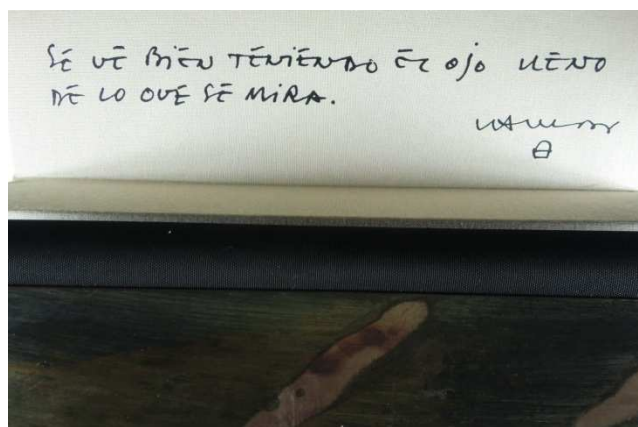 SE VE BIEN TENIENDO EL OJO LLENO
DE LO QUE SE MIRA.